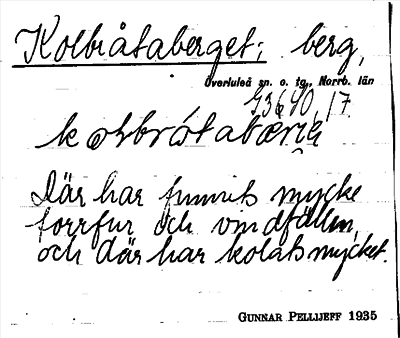 Kolbråtaberget; berg,
Överluleå sn. o. tg., Norrb. län
Där har funnits mycke
torrfur och vindfällen,
och där har kolats mycket.
GUNNAR PELLIJEFF 1935